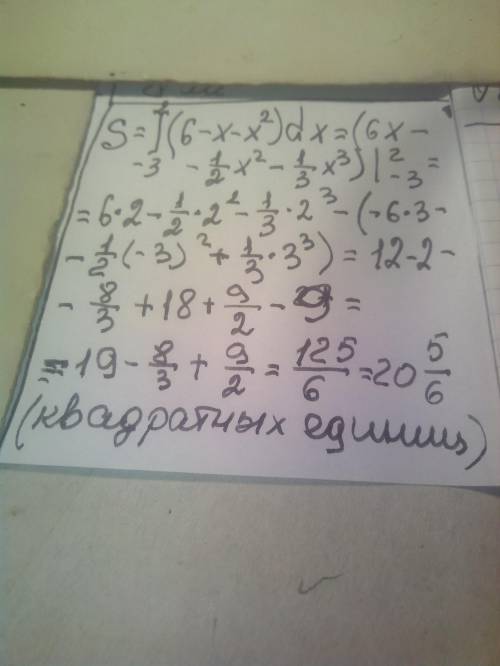 S = ∫₋₃² (6 - x - x²) dx = (6x -
- 1/2 x² - 1/3 x³) |₋₃² =
= 6·2 - 1/2·2² - 1/3·2³ - (-6·3 -
- 1/2 (-3)² + 1/3·3³) = 12 - 2 -
- 8/3 + 18 + 9/2 - 9 =
= 19 - 8/3 + 9/2 = 125/6 = 20 5/6
(квадратных единиц)